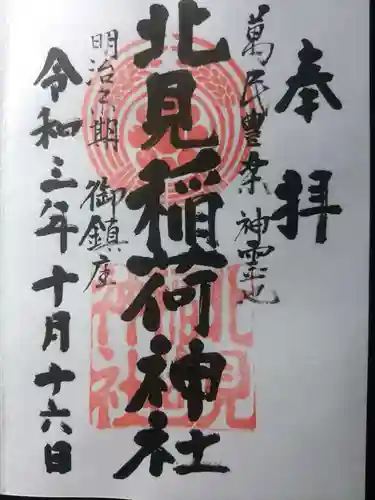 奉拝
萬民豊楽 神霊也
北見稲荷神社
明治二期 御鎮座
令和三年十月十六日
北見
稲荷
神社